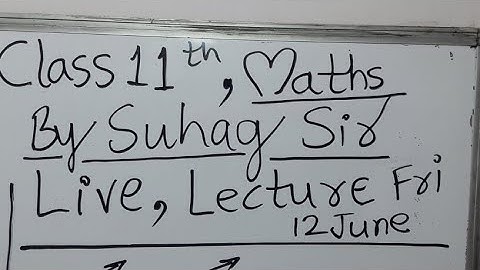 Class 11th, Maths
By Suhag Sir
Live, Lecture Fri
12 June